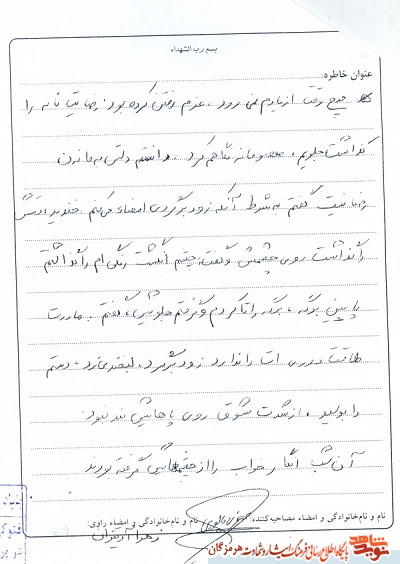 بسم رب الشهداء
عنوان خاطره:
هیچ وقت از یادم نمی رود، عزم رفتن کرده بود. رضایت نامه را
گذاشت جلویم، معصومانه نگاهم کرد. دانستم دلش به ماندن
نیست گفتم به شرط آنکه زود برگردی امضاء می کنم. خندید، دستش
را گذاشت روی چشمش و گفت: چشم انگشت رنگی ام را گذاشتم
پایین برگه، برگه را تا کردم و گرفتم جلویش، گفتم. مادرت
طاقت دوری ات را ندارد زود برگرد، لبخندی زد، دستم
را بوسید، از شدت شوق روی پاهایش بند نبود.
آن شب انگار خواب را از چشمهایش گرفته بودند
نام و نام خانوادگی و امضاء مصاحبه کننده:
نام و نام خانوادگی و امضاء راوی:
زهرا
نوید شاهد
پایگاه اطلاع رسانی فرهنگ ایثار و شهادت هرمزگان